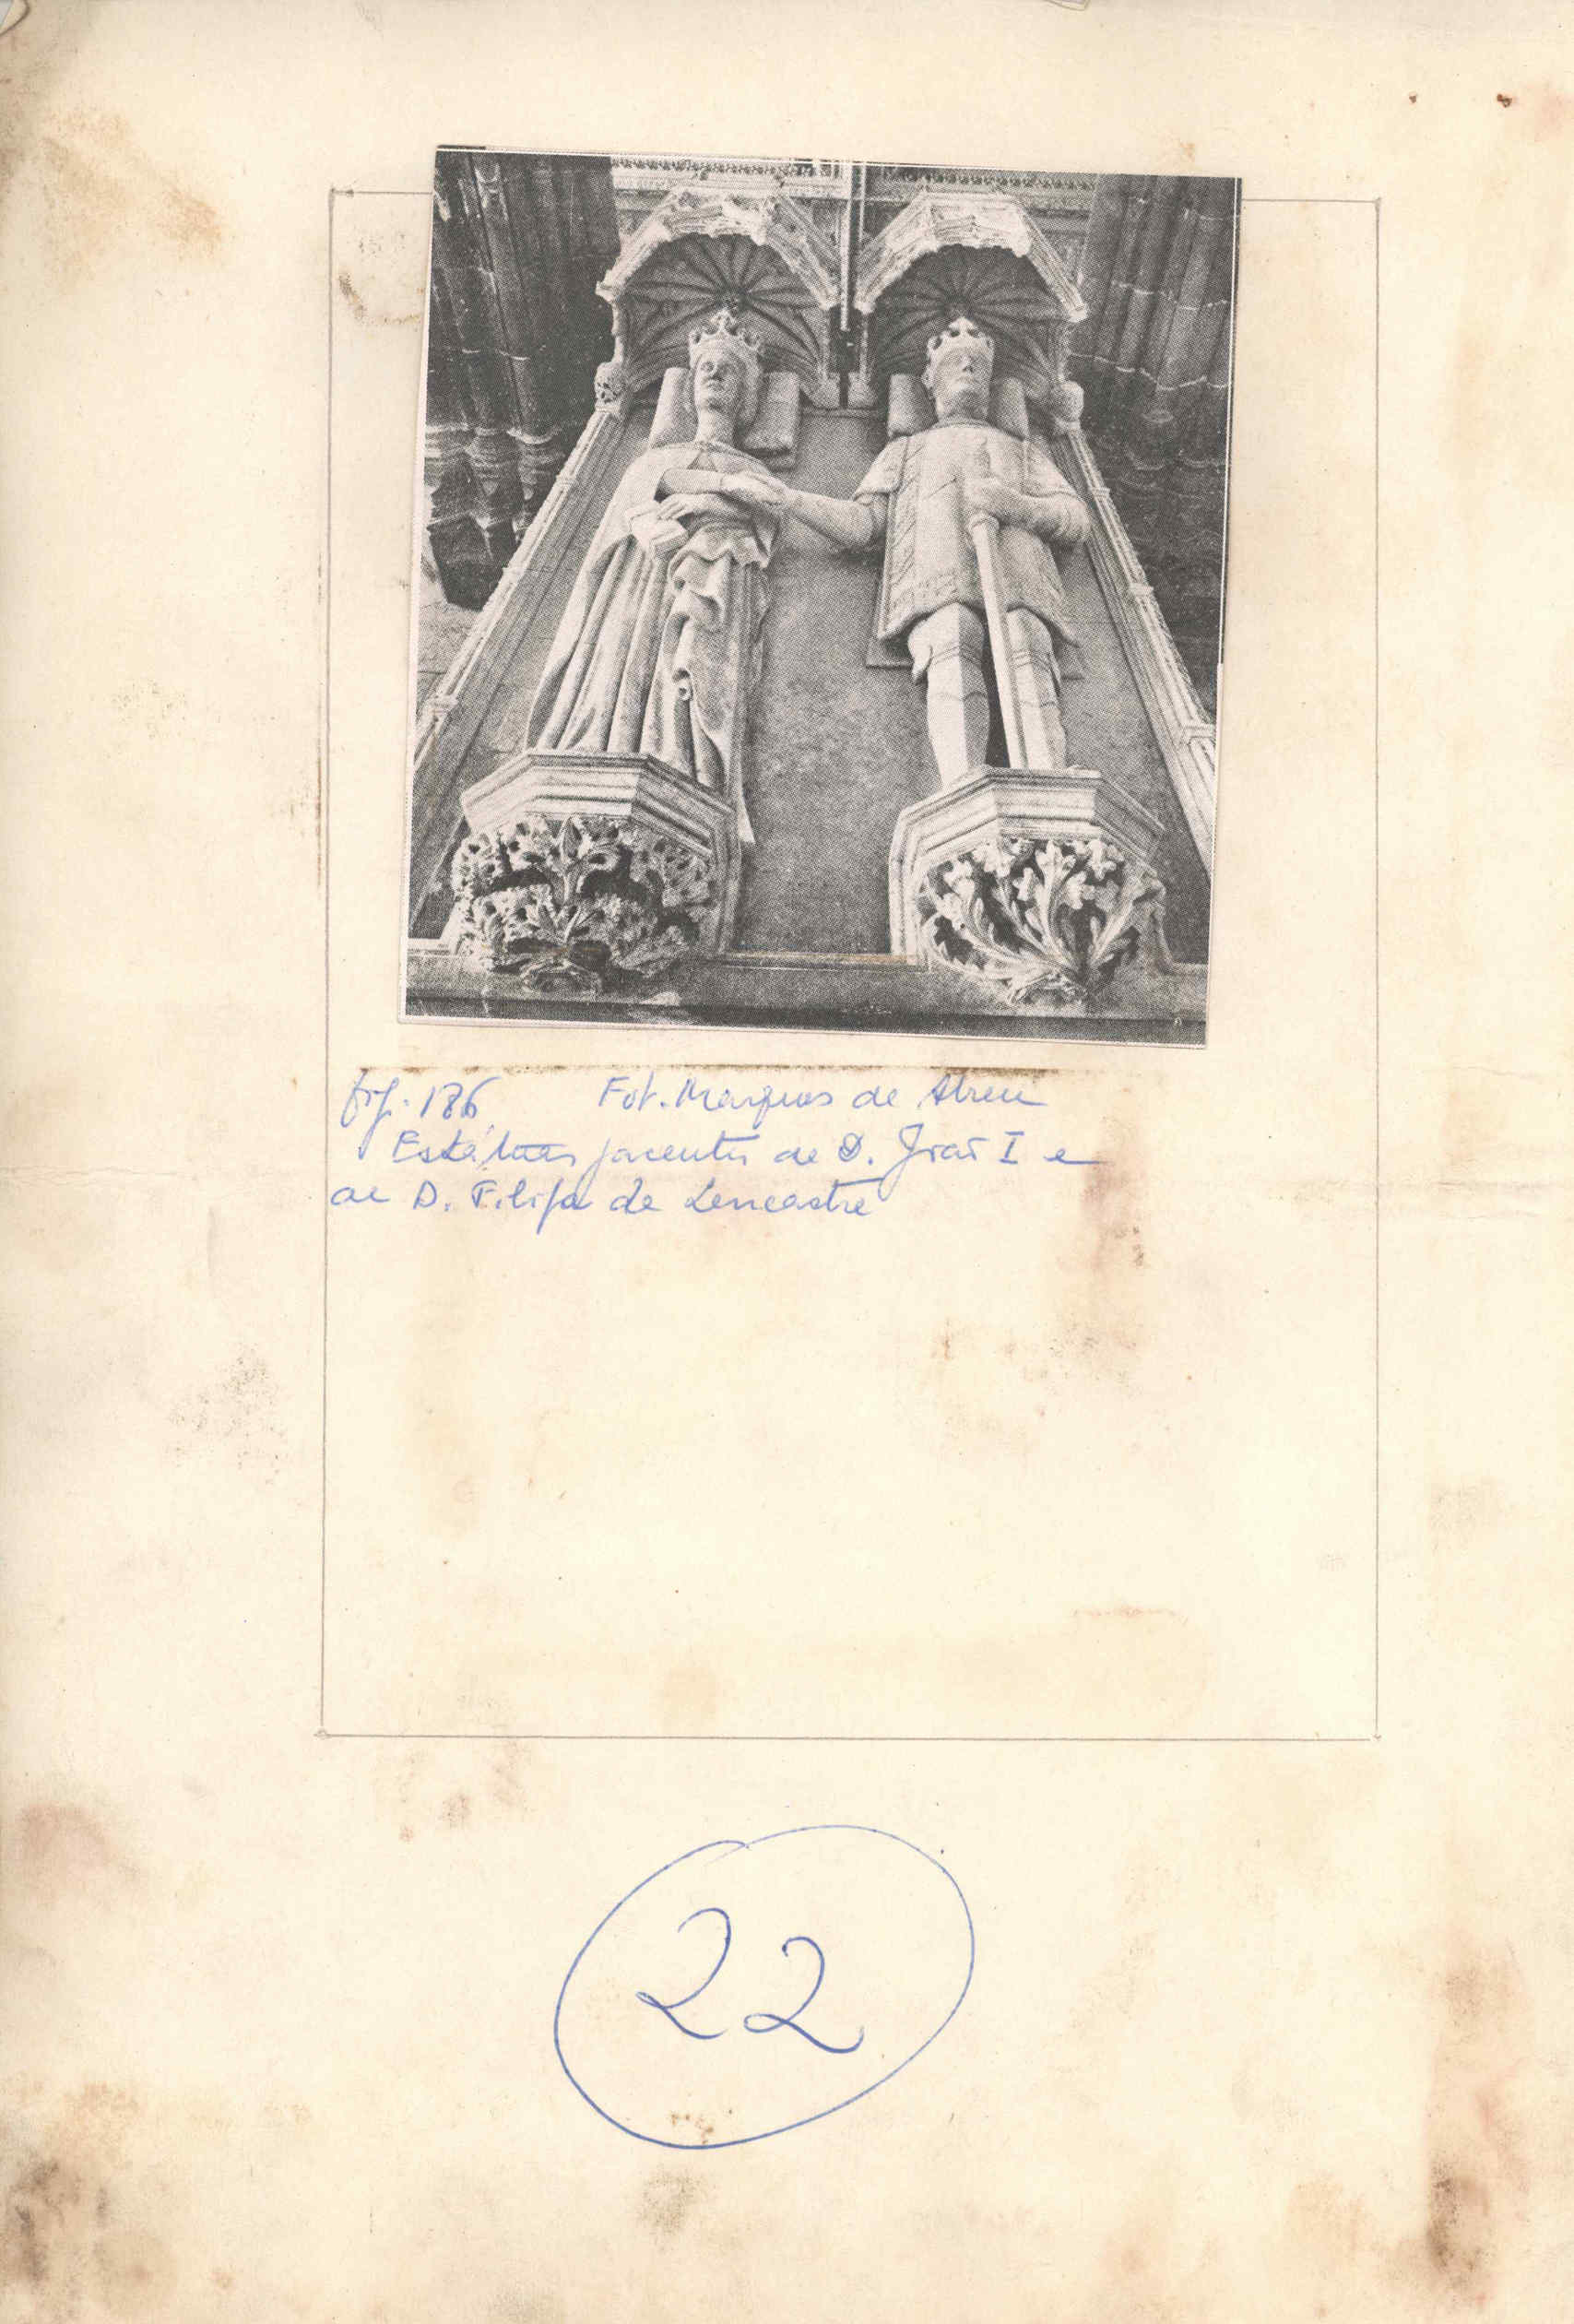 fig. 186 Fot. Marques de Abreu
Estátuas jacentes de D. João I e
de D. Filipa de Lencastre
22